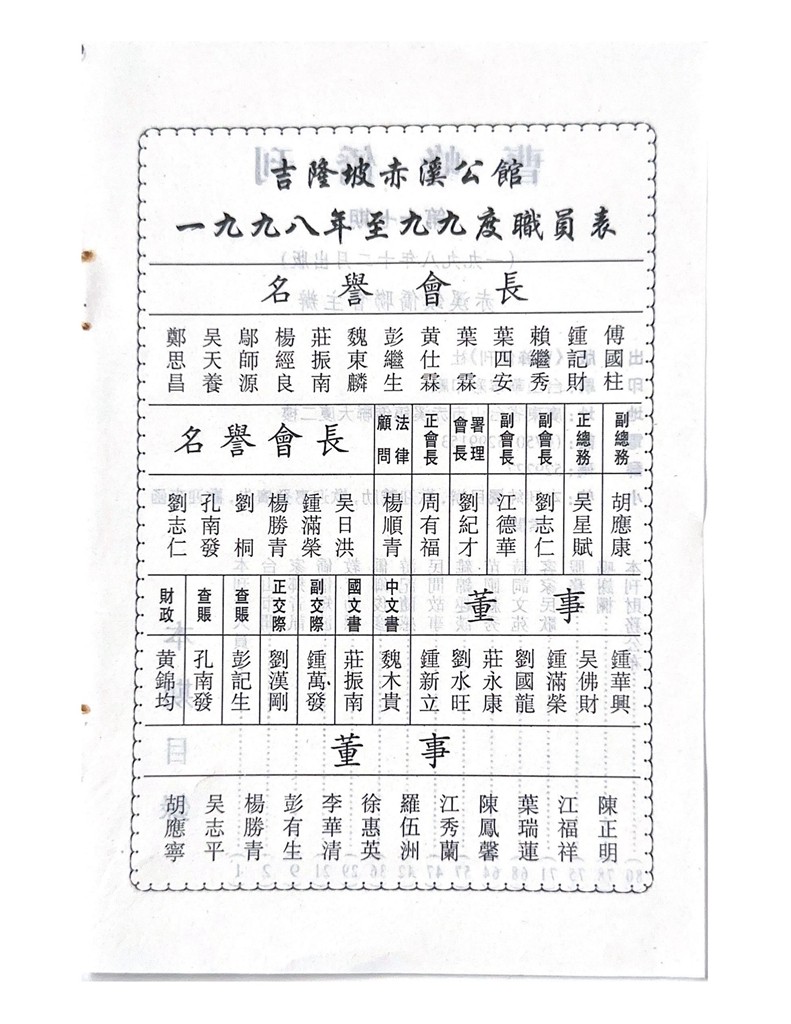 吉隆坡赤溪公館
一九九八年至九九度職員表
名譽會長
鄭思昌
吳天養
鄔師源
楊經良
莊振南
魏東麟
彭繼生
黃仕霖
葉霖
葉四安
賴繼秀
鍾記財
傅國柱
名譽會長
法律顧問
正會長
署理會長
副會長
副會長
正總務
副總務
劉志仁
孔南發
劉桐
楊勝青
鍾滿榮
吳日洪
楊順青
周有福
劉紀才
江德華
劉志仁
吳星賦
胡應康
財政
查賬
查賬
正交際
副交際
國文書
中文書
董事
黃錦均
孔南發
彭記生
劉漢剛
鍾萬發
莊振南
魏木貴
鍾新立
劉水旺
莊永康
劉國龍
鍾滿榮
吳佛財
鍾華興
董事
胡應寧
吳志平
楊勝青
彭有生
李華清
徐惠英
羅伍洲
江秀蘭
陳鳳馨
葉瑞蓮
江福祥
陳正明